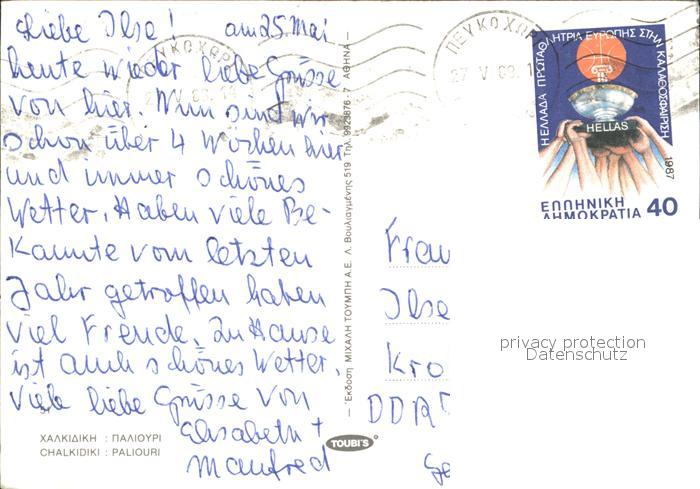 Liebe Ilse! am 25. Mai
heute wieder liebe Grüsse
von hier. Nun sind wir
schon über 4 Wochen hier
und immer schönes
Wetter. Haben viele Be-
kannte vom letzten
Jahr getroffen haben
viel Freude. Zu Hause
ist auch schönes Wetter.
Viele liebe Grüsse von
Elisabeth +
Manfred
ΧΑΛΚΙΔΙΚΗ : ΠΑΛΙΟΥΡΙ
CHALKIDIKI : PALIOURI
— Έκδοση ΜΙΧΑΛΗ ΤΟΥΜΠΗ Α.Ε. Λ. Βουλιαγμένης 519 Τηλ. 9923876 - 7 ΑΘΗΝΑ —
TOUBI'S
ΠΕΥΚΟΧΩΡ
27 V 88
Η ΕΛΛΑΔΑ ΠΡΩΤΑΘΛΗΤΡΙΑ ΕΥΡΩΠΗΣ ΣΤΗΝ ΚΑΛΑΘΟΣΦΑΙΡΙΣΗ
HELLAS
1987
ΕΛΛΗΝΙΚΗ
ΔΗΜΟΚΡΑΤΙΑ 40
Frau
Ilse
Kro
DDR
privacy protection
Datenschutz